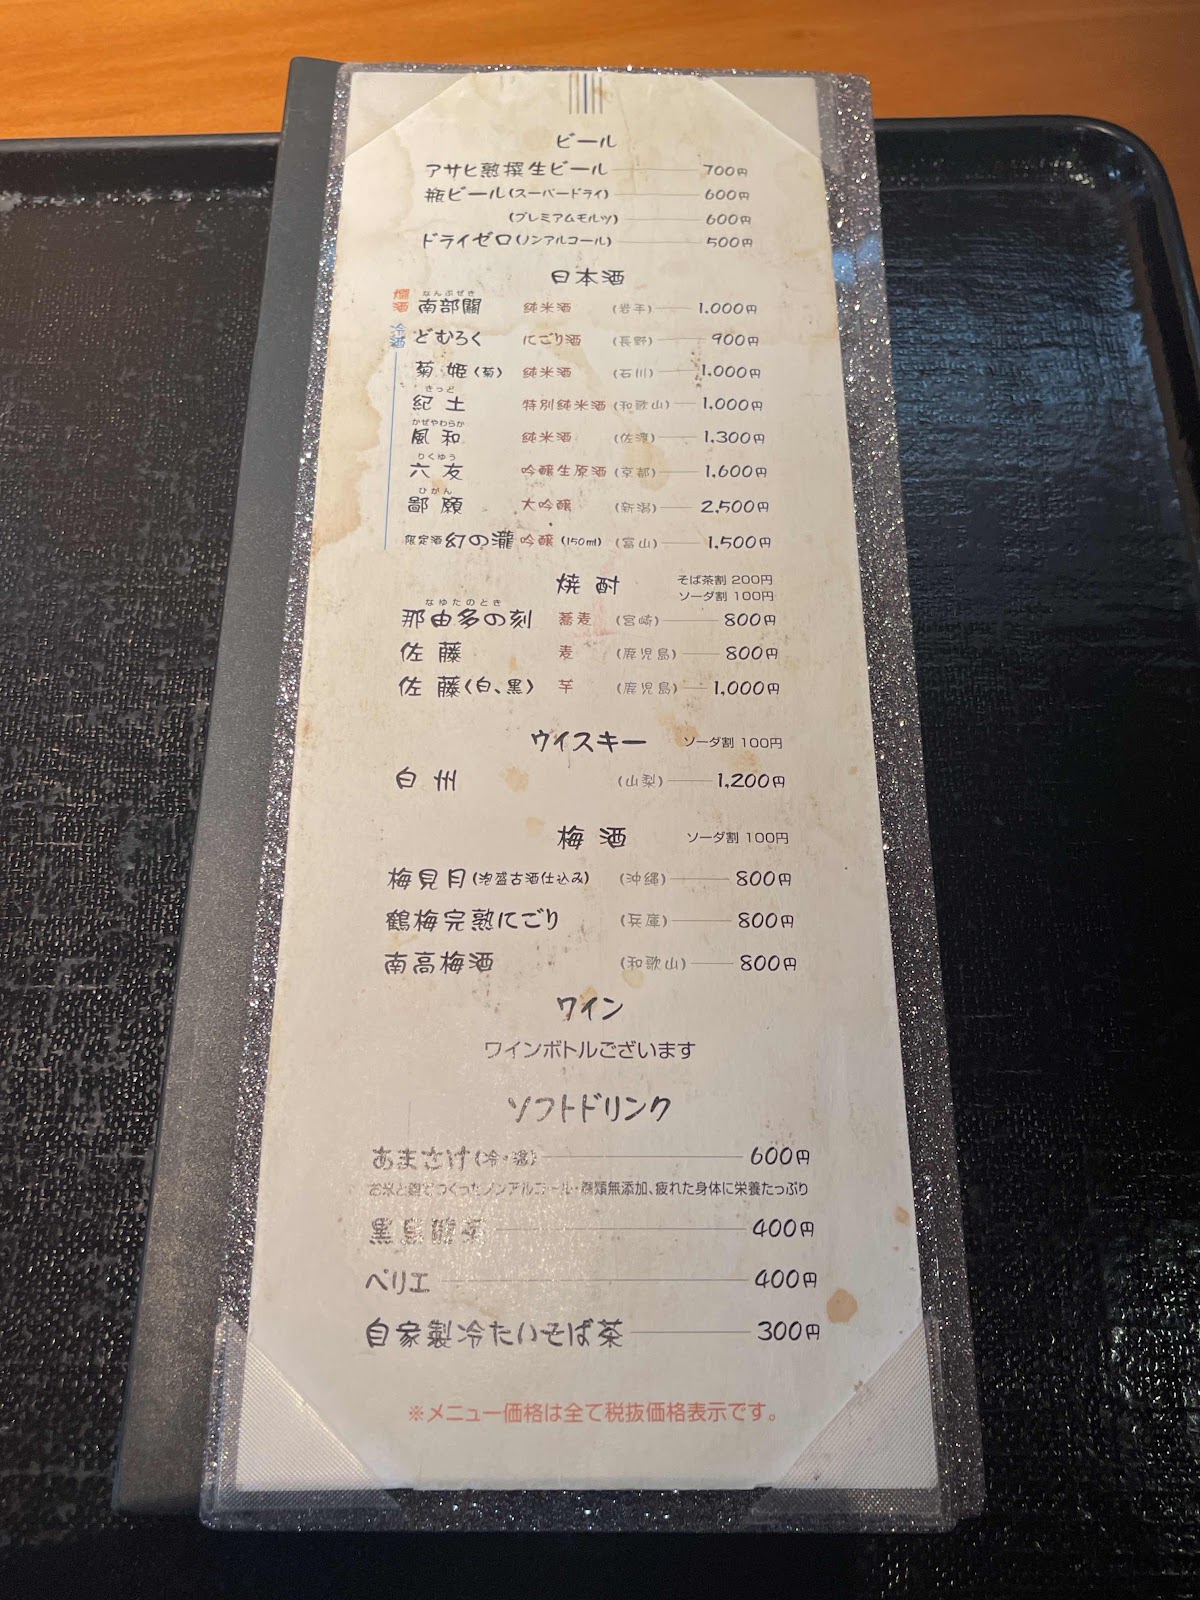 ビール
アサヒ熟撰生ビール 700円
瓶ビール(スーパードライ) 600円
(プレミアムモルツ) 600円
ドライゼロ(ノンアルコール) 500円
日本酒
なんぶぜき
燗酒 南部關 純米酒 (岩手) 1,000円
冷酒 どむろく にごり酒 (長野) 900円
菊姫(菊) 純米酒 (石川) 1,000円
きっど
紀土 特別純米酒 (和歌山) 1,000円
かぜやわらか
風和 純米酒 (佐渡) 1,300円
りくゆう
六友 吟醸生原酒 (京都) 1,600円
ひがん
鄙願 大吟醸 (新潟) 2,500円
限定酒 幻の瀧 吟醸 (150ml) (富山) 1,500円
焼酎 そば茶割 200円
ソーダ割 100円
なゆたのとき
那由多の刻 蕎麦 (宮崎) 800円
佐藤 麦 (鹿児島) 800円
佐藤(白、黒) 芋 (鹿児島) 1,000円
ウイスキー ソーダ割 100円
白州 (山梨) 1,200円
梅酒 ソーダ割 100円
梅見月(泡盛古酒仕込み) (沖縄) 800円
鶴梅完熟にごり (兵庫) 800円
南高梅酒 (和歌山) 800円
ワイン
ワインボトルございます
ソフトドリンク
あまさけ(冷・温) 600円
お米と麹でつくったノンアルコール・糖類無添加、疲れた身体に栄養たっぷり
黒 400円
ペリエ 400円
自家製冷たいそば茶 300円
※メニュー価格は全て税抜価格表示です。